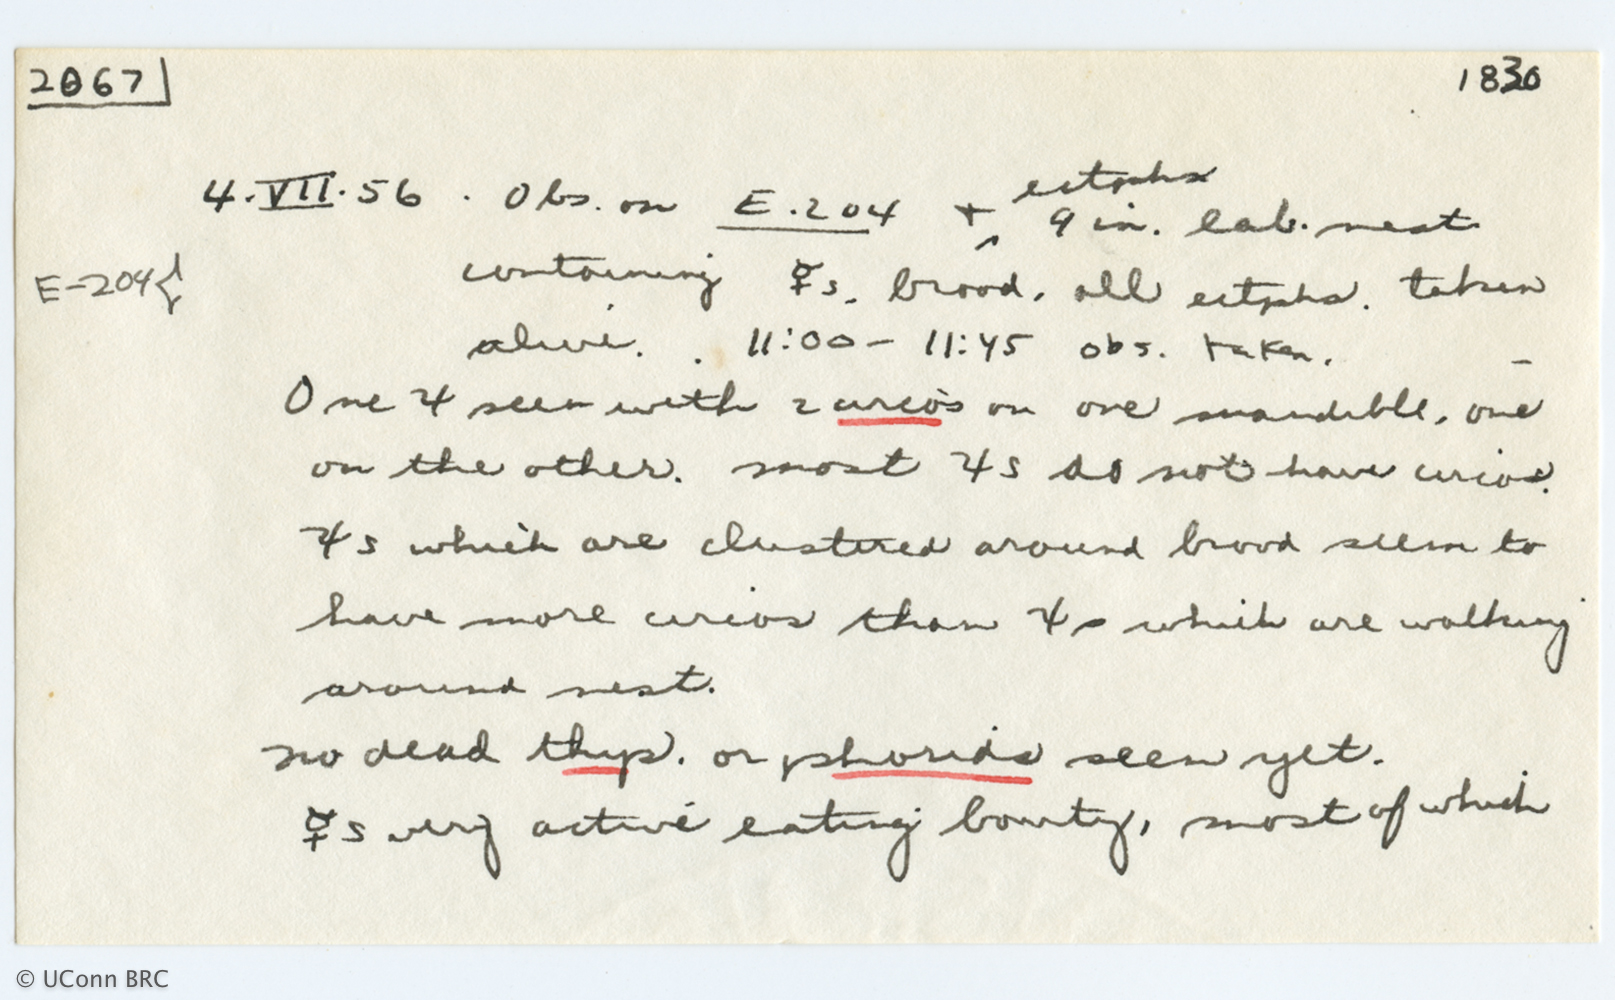 2067
1830
4.VII.56 . Obs. on E.204 + ectphs
9 in. lab. nest
E-204{
containing ☿s, brood, all ectphs. taken
alive. . 11:00 – 11:45 obs. taken. –
One ♃ seen with 2 circos on one mandible, one
on the other. most ♃s do not have circos.
♃s which are clustered around brood seem to
have more circos than ♃s which are walking
around nest.
no dead thyp. or phorids seen yet.
☿s very active eating booty, most of which
© UConn BRC